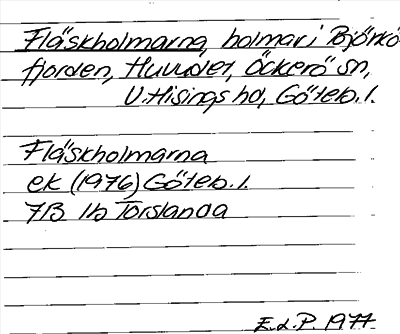 Fläskholmarna, holmar i Björkö
fjorden, Huvudet, Öckerö sn,
V. Hisings hd, Göteb. l.
Fläskholmarna
ek (1976) Göteb. l.
7B 1b Torslanda
E.L.P. 1977